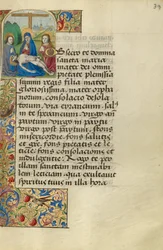 Obsecro te domina
sancta maria
mater dei omni
pietate plenissi
summi regis filia mater
gloriosissima mater orpha
norum consolacio desola
torum via errancium sal
sperancium virgo an
partum virgo in partu
virgo post partum fons
misericordie fons salutis
et gracie fons pietatis et le
ticie fons consolacionis et
indulgencie Et per
illam sanctam inestimabi
lem leticiam qua exultauit
spiritus tuus in illa hora